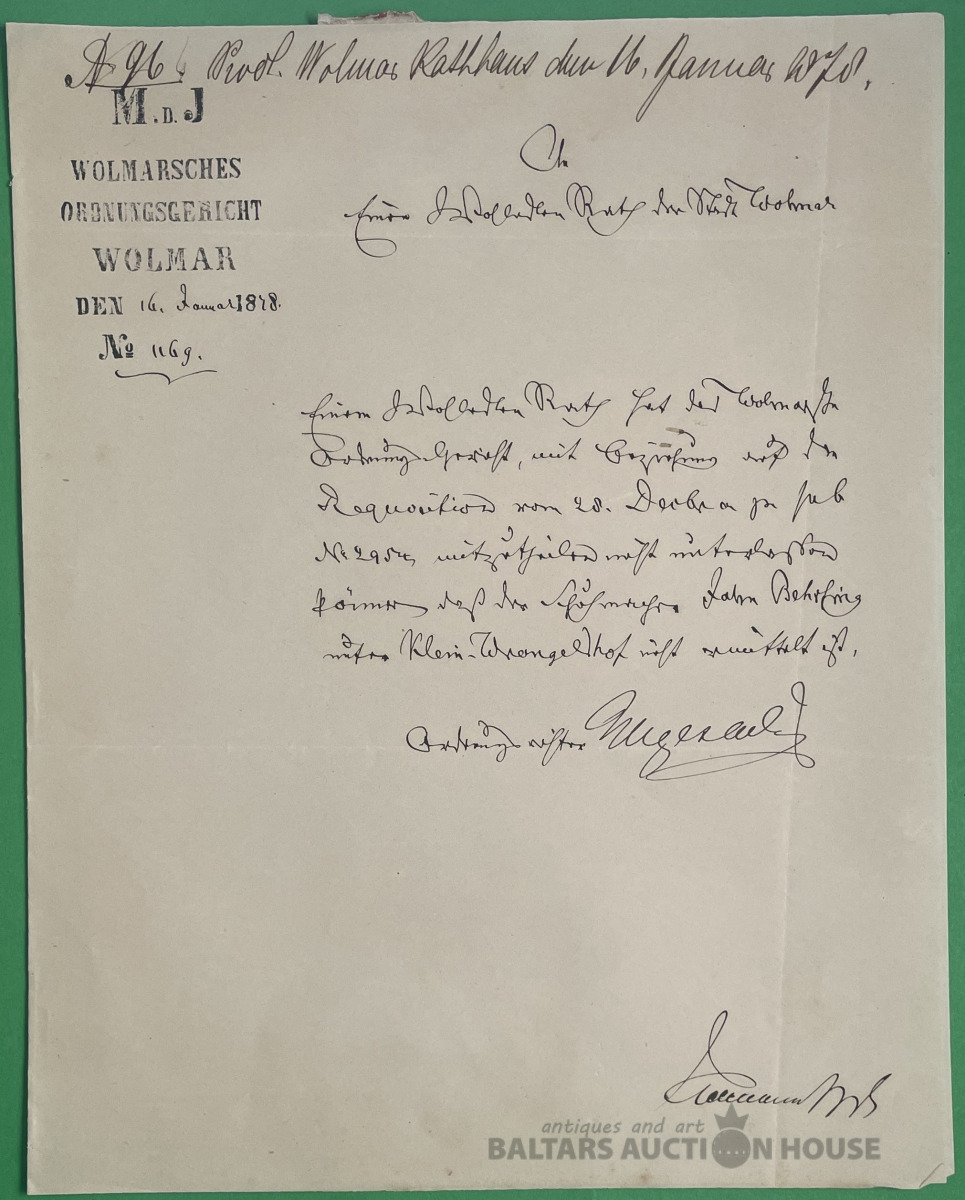 № 96 Prod. Wolmar Rathhaus den 16. Januar 1878.
M.D.J
WOLMARSCHES
ORDNUNGSGERICHT
WOLMAR
DEN 16. Januar 1878.
№ 1169.
An
Einen Wohledlen Rath der Stadt Wolmar
Einem Wohledlen Rath hat das Wolmarsche
Ordnungsgericht, mit Beziehung auf die
Requisition vom 28. Decbr a p. sub
№ 2954, mitzutheilen nicht unterlassen
können daß der Schuhmacher Jahn Behrsing
unter Klein-Wrangelshof nicht ermittelt ist.
Ordnungsrichter
antiques and art
BALTARS AUCTION HOUSE